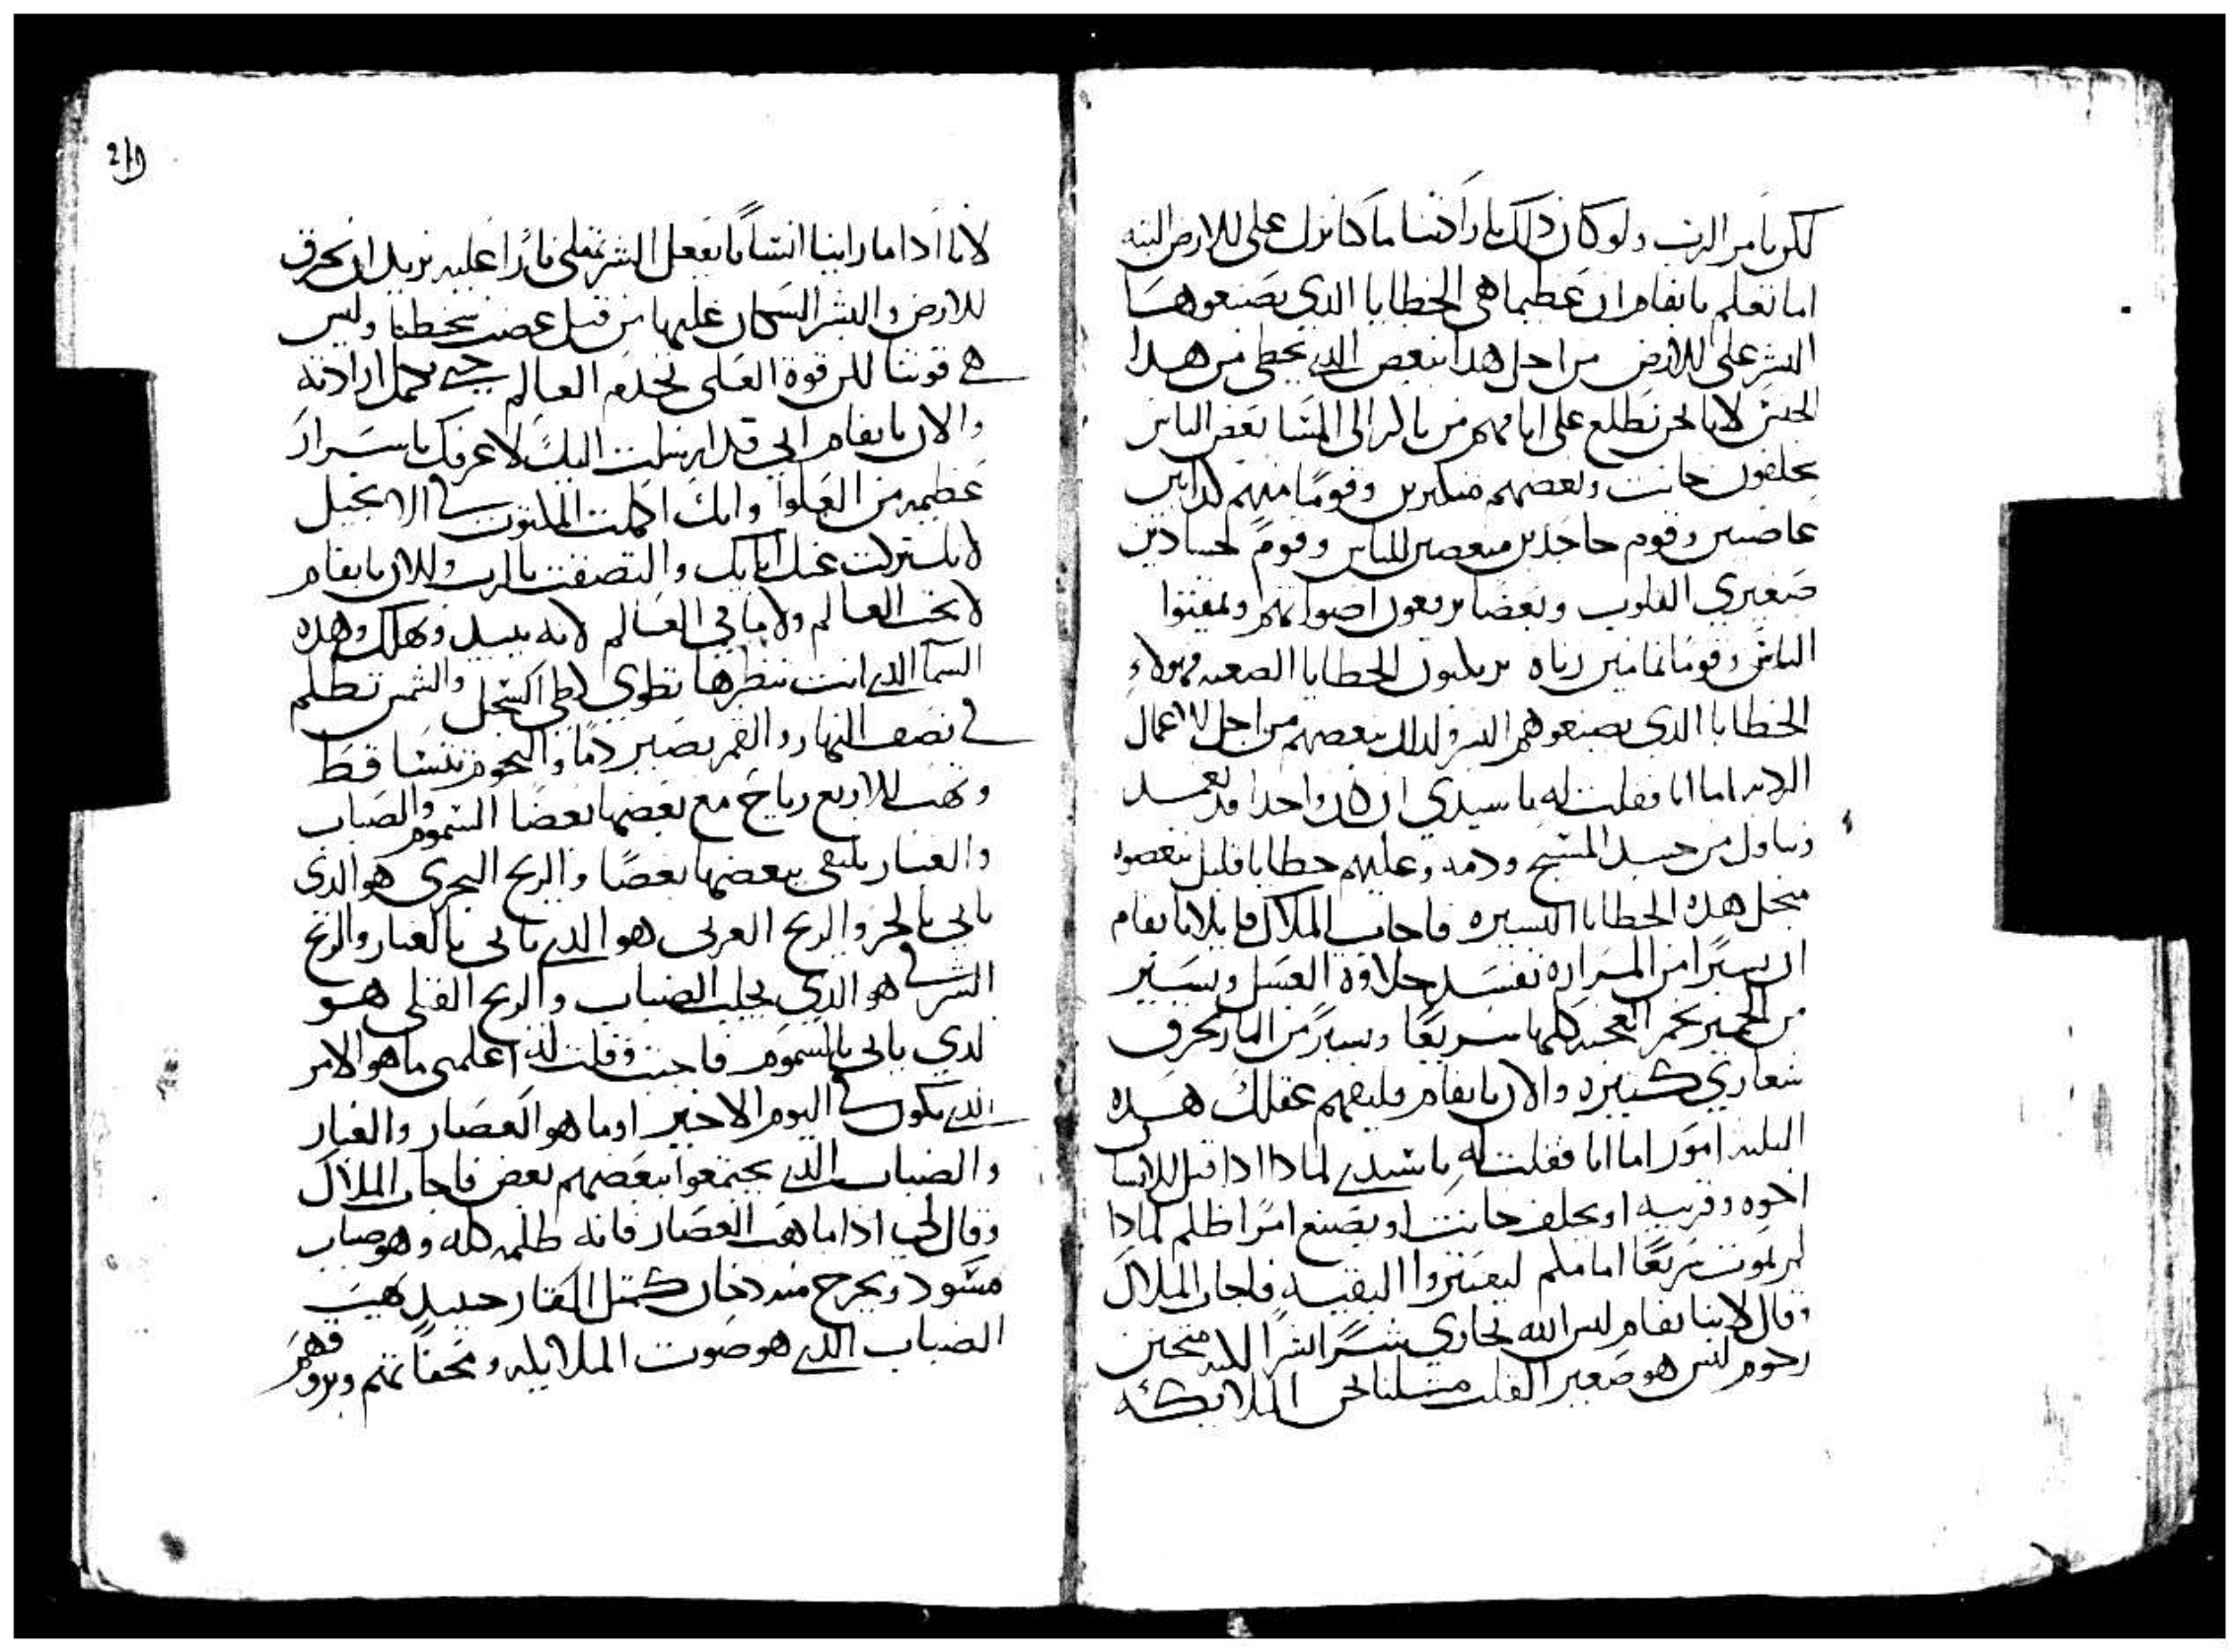 لكن بامر الرب ولو كان ذلك بارادتنا ما كنا ننزل على للارض البته
اما تعلم يا بفام ان عظيما هى الخطايا الذي يصنعوها
البشر على للارض من اجل هدا نبغض الدي يخطى من هدا
الجنس لاننا نحن نطلع على اتامهم من باكر الى المسا بعض الناس
يحلفون حانت وبعضهم متكبرين وقومًا منهم كدابين
عاصيين وقوم حاحدين مبغضين للناس وقومً حسادين
صغيري القلوب وبعضا يرفعون اصواتهم ويمقتوا
الناس وقومًا نمامين زناه يرتكبون الخطايا الصعبه فهولاءِ
الخطايا الذي يصنعوهم البشر ولدلك نبغضهم من اجل لاعمال
الرديه اما انا فقلت له يا سيدي ان كان واحدا قد تعمد
وتناول من جسد المسيح ودمه وعليهم خطايا قليل تبغضوه
منجل هذه الخطايا اليسيره فاجاب الملاك قايلا يا بفام
ان يسيرًا من المراره تفسد حلاوة العسل ويسير
من الخمير يخمر العجنه كلها سريعًا ويسيرً من النار تحرق
شعاري كثيره والان يا بفام فليفهم عقلك هذه
الثلثه امور اما انا فقلت له يا سيدي لمادا ادا قتل للانسان
اخوه وقريبه او يحلف حانت او يصنع امرًا ظلم لمادا
لم يموت سريعًا امامكم ليعتبروا البقيه فاجاب الملاك
وقال لانبا بفام ليس الله يجازي شرًا لشرًا لانه متحنن
رحوم ليس هو صغير القلب مثلنا نحن الملايكه
219
لانا اذا ما راينا انسانًا يفعل الشر نمتلى نارًا عليه نريد ان نحرق
للارض والبشر السكان عليها من قبل غضب سخطنا وليس
هى قوتنا لكن قوة العلى تخدم العالم حتي تكمل ارادته
والان يا بفام اني قد ارسلت اليك لاعرفك باسرار
عظيمه من العلوا وانك اكملت المكتوب في الانجيل
لانك تركت عنك ابايك والتصقت بالرب وللان يا بفام
لا تحب العالم ولا ما في العالم لانه يبيد ويهلك وهذه
السما الدي انت تنظرها تطوى كطى السجل والشمس تظلم
في نصف النهار والقمر يصير دمًا والنجوم تتساقط
وتهب للاربع رياح مع بعضها بعضًا السموم والضباب
والغبار يلتقى ببعضها بعضًا والريح البحرى هو الذى
ياتى بالحر والريح الغربى هو الدي ياتى بالغبار والريح
الشرقي هو الذي يجلب الضباب والريح القبلى هو
لدي ياتى بالسموم فاجبت وقلت له اعلمنى ما هو الامر
الدي يكون في اليوم الاخير او ما هو العصار والغبار
والضباب الدي يجتمعوا ببعضهم بعض فاجاب الملاك
وقال لي اذا ما هب العصار فانه ظلمه كله وهو ضباب
مسود ويخرج منه دخان كمثل القار حينيد يهيب
الضباب الدي هو صوت الملايكه